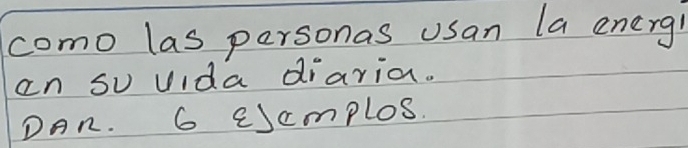 como las personas usan la energi
en su vida diaria.
DAR. 6 EJemplos.